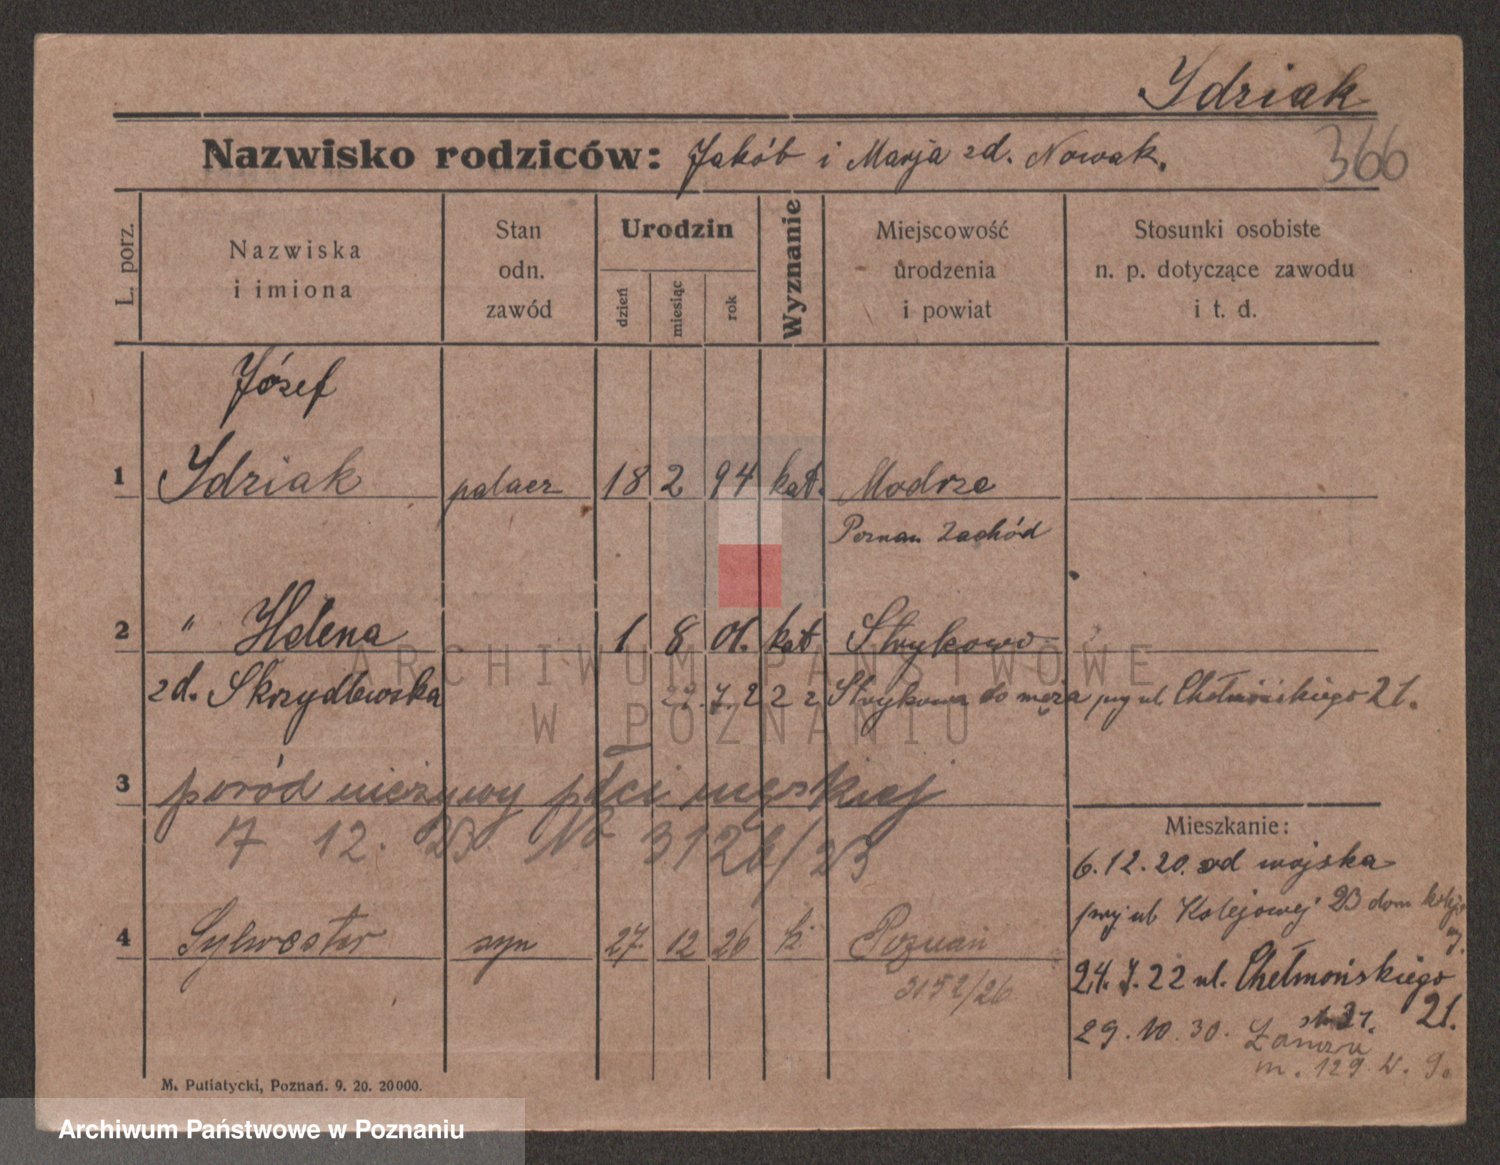 Idziak
Nazwisko rodziców: Jakób i Marja zd. Nowak.
366
L. porz.
Nazwiska
i imiona
Stan
odn.
zawód
Urodzin
dzień
miesiąc
rok
Wyznanie
Miejscowość
urodzenia
i powiat
Stosunki osobiste
n. p. dotyczące zawodu
i t. d.
Józef
1 Idziak palacz 18 2 94 kat. Modrze
Poznań Zachód
2 " Helena 1 8 01. kat Strykowo
zd. Skrzydlewska 22. 7. 22 z Strykowa do męża przy ul. Chełmońskiego 21.
3 poród nieżywy płci męskiej
7 12. 23 Nr 3126/23
4 Sylwester syn 27 12 26 k. Poznań
3152/26
Mieszkanie:
6.12.20. od wojska
przy ul. Kolejowej 23 dom
24.7.22 ul. Chełmońskiego
21.
29.10.30.
m. 129
M. Putiatycki, Poznań. 9. 20. 20000.
ARCHIWUM PAŃSTWOWE
W POZNANIU
Archiwum Państwowe w Poznaniu